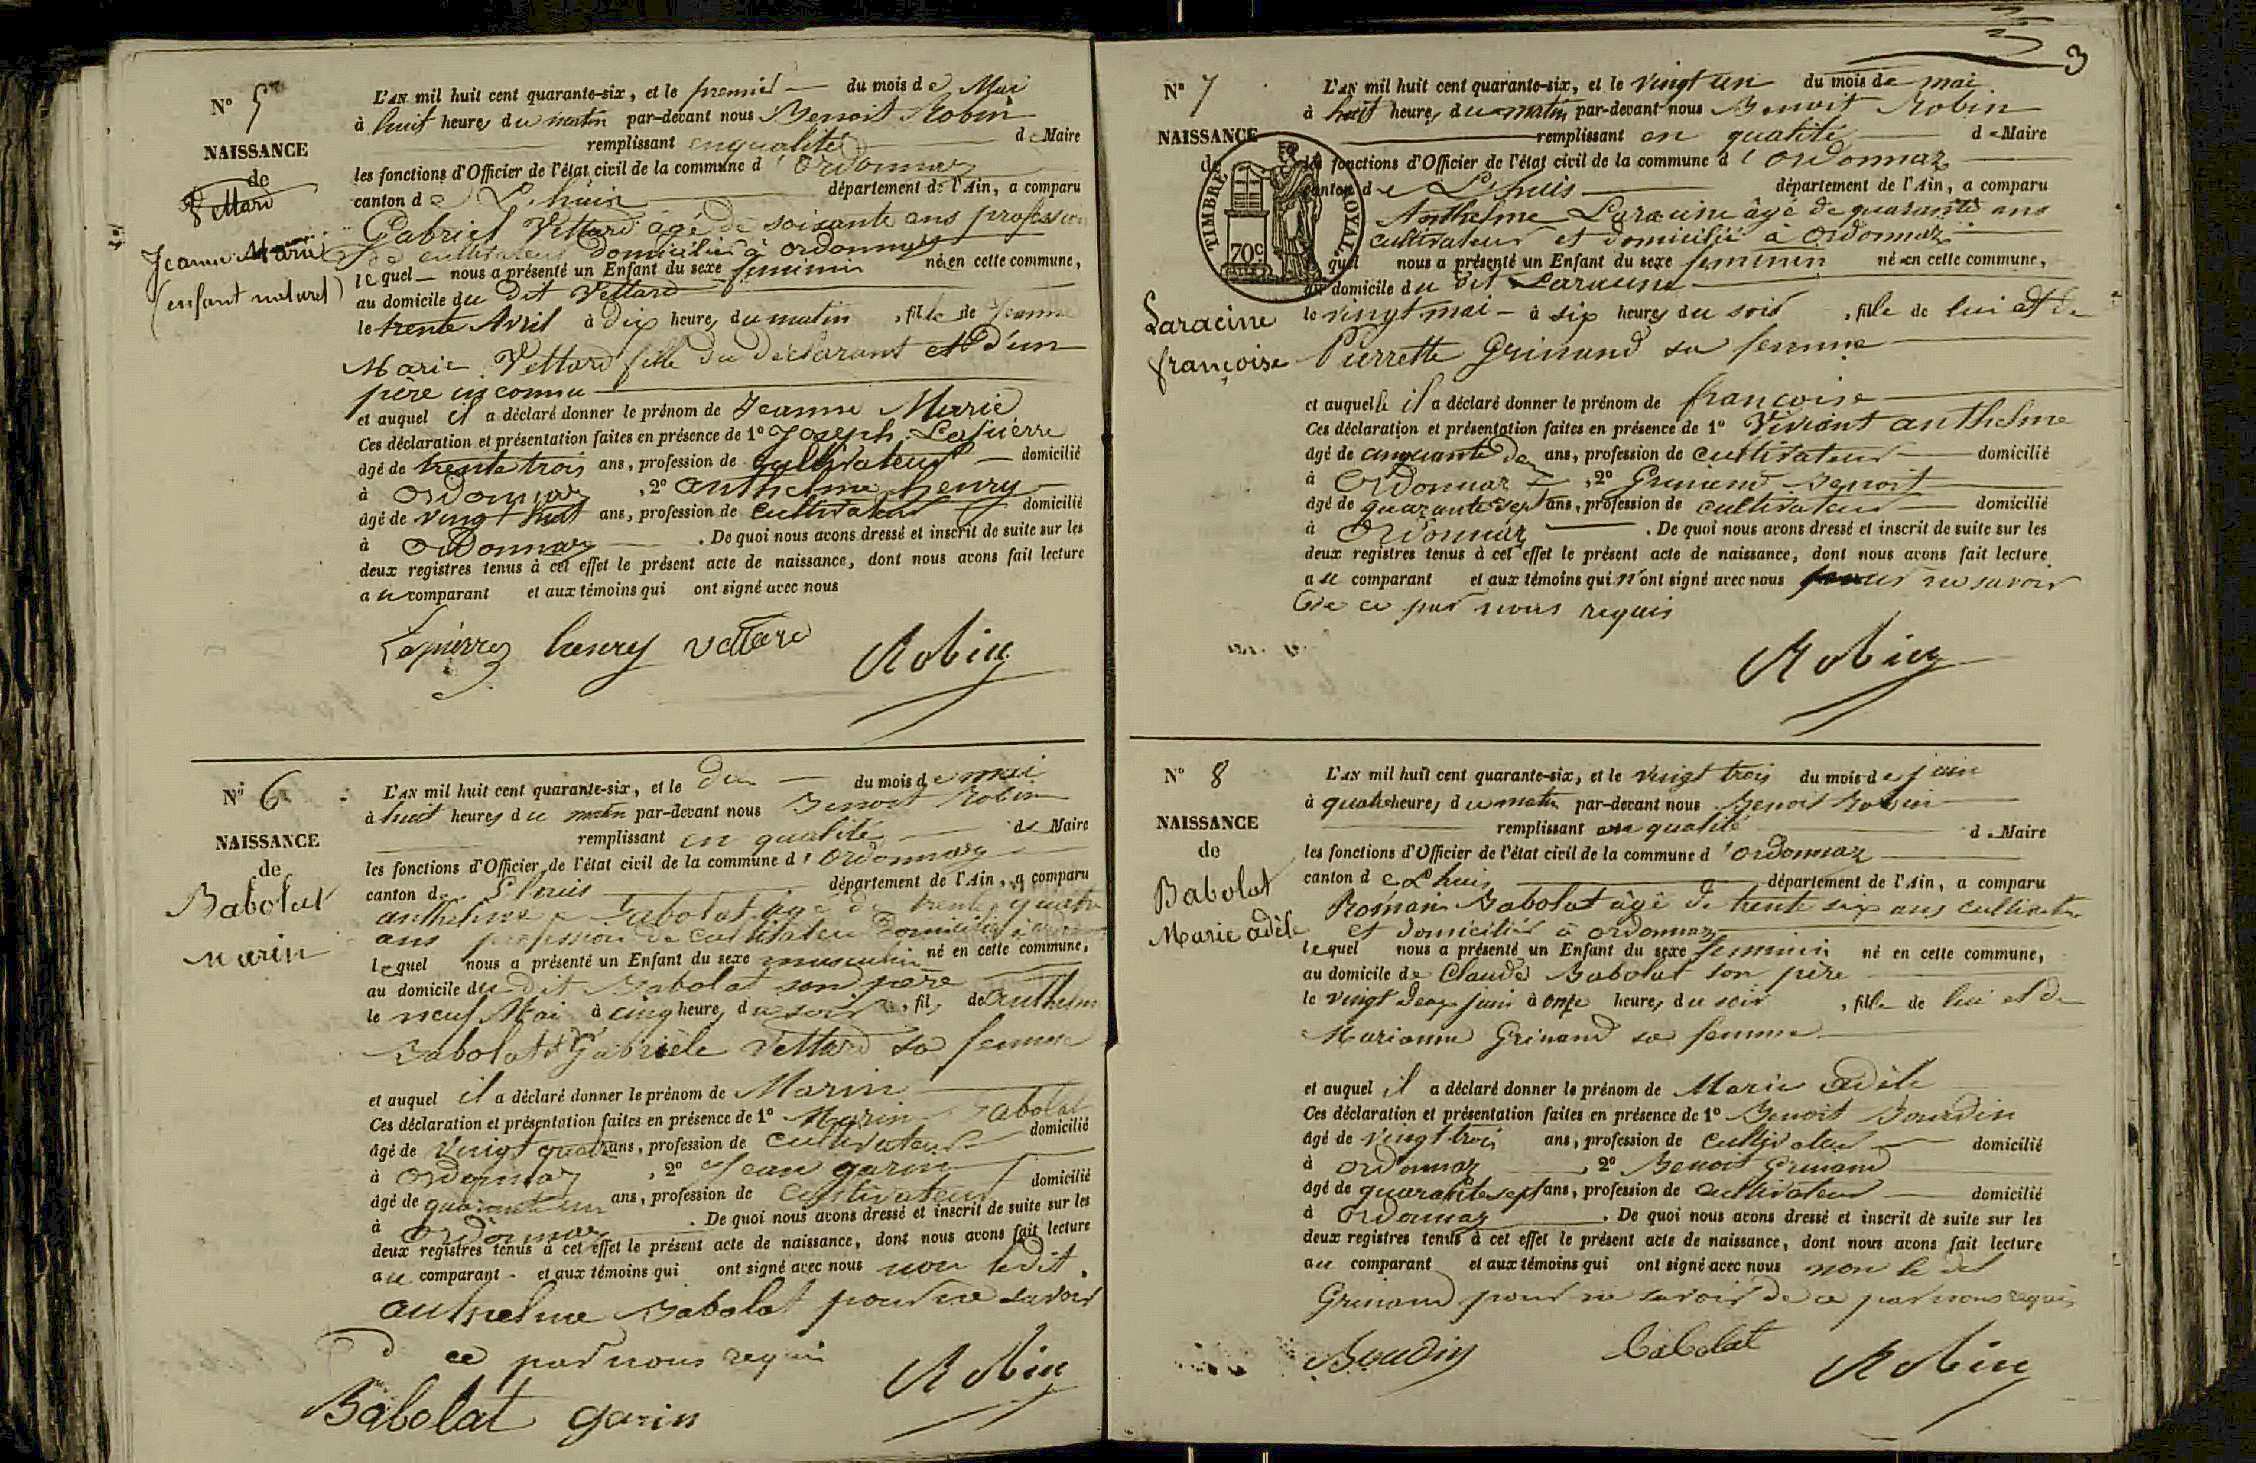 N° 5
NAISSANCE
de
Vettard
Jeanne Marie
(enfant naturel)
L'AN mil huit cent quarante-six, et le premier du mois de Mai
à huit heures du matin par-devant nous Benoit Robin
remplissant en qualité de Maire
les fonctions d'Officier de l'état civil de la commune d'ordonnaz
canton de L'huis département de l'Ain, a comparu
Gabriel Vettard âgé de soixante ans profession
de cultivateur domicilié à ordonnaz
lequel nous a présenté un Enfant du sexe feminin né en cette commune,
au domicile du dit Vettard
le trente Avril à dix heures du matin, fille de Jeanne
Marie Vettard fille du déclarant et d'un
père inconnu
et auquel il a déclaré donner le prénom de Jeanne Marie
Ces déclaration et présentation faites en présence de 1° Joseph Lapierre
âgé de trente trois ans, profession de cultivateur domicilié
à ordonnaz, 2° anthelme henry
âgé de vingt huit ans, profession de cultivateur domicilié
à ordonnaz. De quoi nous avons dressé et inscrit de suite sur les
deux registres tenus à cet effet le présent acte de naissance, dont nous avons fait lecture
au comparant et aux témoins qui ont signé avec nous
Lapierre henry vettard Robin
N° 6
NAISSANCE
de
Babolat
marin
L'AN mil huit cent quarante-six, et le dix du mois de mai
à huit heures du matin par-devant nous Benoit Robin
remplissant en qualité de Maire
les fonctions d'Officier de l'état civil de la commune d'ordonnaz
canton de L'huis département de l'Ain, a comparu
anthelme Babolat âgé de trente quatre
ans profession de cultivateur domicilié à
lequel nous a présenté un Enfant du sexe masculin né en cette commune,
au domicile du dit Babolat son père
le neuf Mai à cinq heures du soir, fils de anthelme
Babolat & Gabrièle Vettard sa femme
et auquel il a déclaré donner le prénom de Marin
Ces déclaration et présentation faites en présence de 1° Marin Babolat
âgé de vingt quatre ans, profession de cultivateur domicilié
à ordonnaz, 2° Jean garin
âgé de quarante un ans, profession de cultivateur domicilié
à ordonnaz. De quoi nous avons dressé et inscrit de suite sur les
deux registres tenus à cet effet le présent acte de naissance, dont nous avons fait lecture
au comparant et aux témoins qui ont signé avec nous non ledit
anthelme Babolat pour ne savoir
de ce par nous requis
Babolat garin Robin
3
N° 7
NAISSANCE
de
Laracine
françoise
TIMBRE ROYAL
70c
L'AN mil huit cent quarante-six, et le vingt un du mois de mai
à huit heures du matin par-devant nous Benoit Robin
remplissant en qualité de Maire
les fonctions d'Officier de l'état civil de la commune d'ordonnaz
canton de L'huis département de l'Ain, a comparu
Anthelme Laracine âgé de quarante ans
cultivateur et domicilié à Ordonnaz
quel nous a présenté un Enfant du sexe feminin né en cette commune,
au domicile du dit Laracine
le vingt mai à six heures du soir, fille de lui et de
Pierrette Grinand sa femme
et auquelle il a déclaré donner le prénom de françoise
Ces déclaration et présentation faites en présence de 1° Viviant anthelme
âgé de cinquante deux ans, profession de cultivateur domicilié
à Ordonnaz, 2° Grinand Benoit
âgé de quarante sept ans, profession de cultivateur domicilié
à Ordonnaz. De quoi nous avons dressé et inscrit de suite sur les
deux registres tenus à cet effet le présent acte de naissance, dont nous avons fait lecture
au comparant et aux témoins qui n'ont signé avec nous pour ne savoir
de ce par nous requis
Robin
N° 8
NAISSANCE
de
Babolat
Marie adèle
L'AN mil huit cent quarante-six, et le vingt trois du mois de juin
à quatre heures du matin par-devant nous Benoit Robin
remplissant en qualité de Maire
les fonctions d'Officier de l'état civil de la commune d'ordonnaz
canton de L'huis département de l'Ain, a comparu
Romain Babolat âgé de trente six ans cultivateur
et domicilié à ordonnaz
lequel nous a présenté un Enfant du sexe feminin né en cette commune,
au domicile de Claude Babolat son père
le vingt deux juin à onze heures du soir, fille de lui et de
Marianne Grinand sa femme
et auquel il a déclaré donner le prénom de Marie adèle
Ces déclaration et présentation faites en présence de 1° Benoit Bourdin
âgé de vingt trois ans, profession de cultivateur domicilié
à ordonnaz, 2° Benoit Grinand
âgé de quarante sept ans, profession de cultivateur domicilié
à ordonnaz. De quoi nous avons dressé et inscrit de suite sur les
deux registres tenus à cet effet le présent acte de naissance, dont nous avons fait lecture
au comparant et aux témoins qui ont signé avec nous non le dit
Grinand pour ne savoir de ce par nous requis
Bourdin babolat Robin